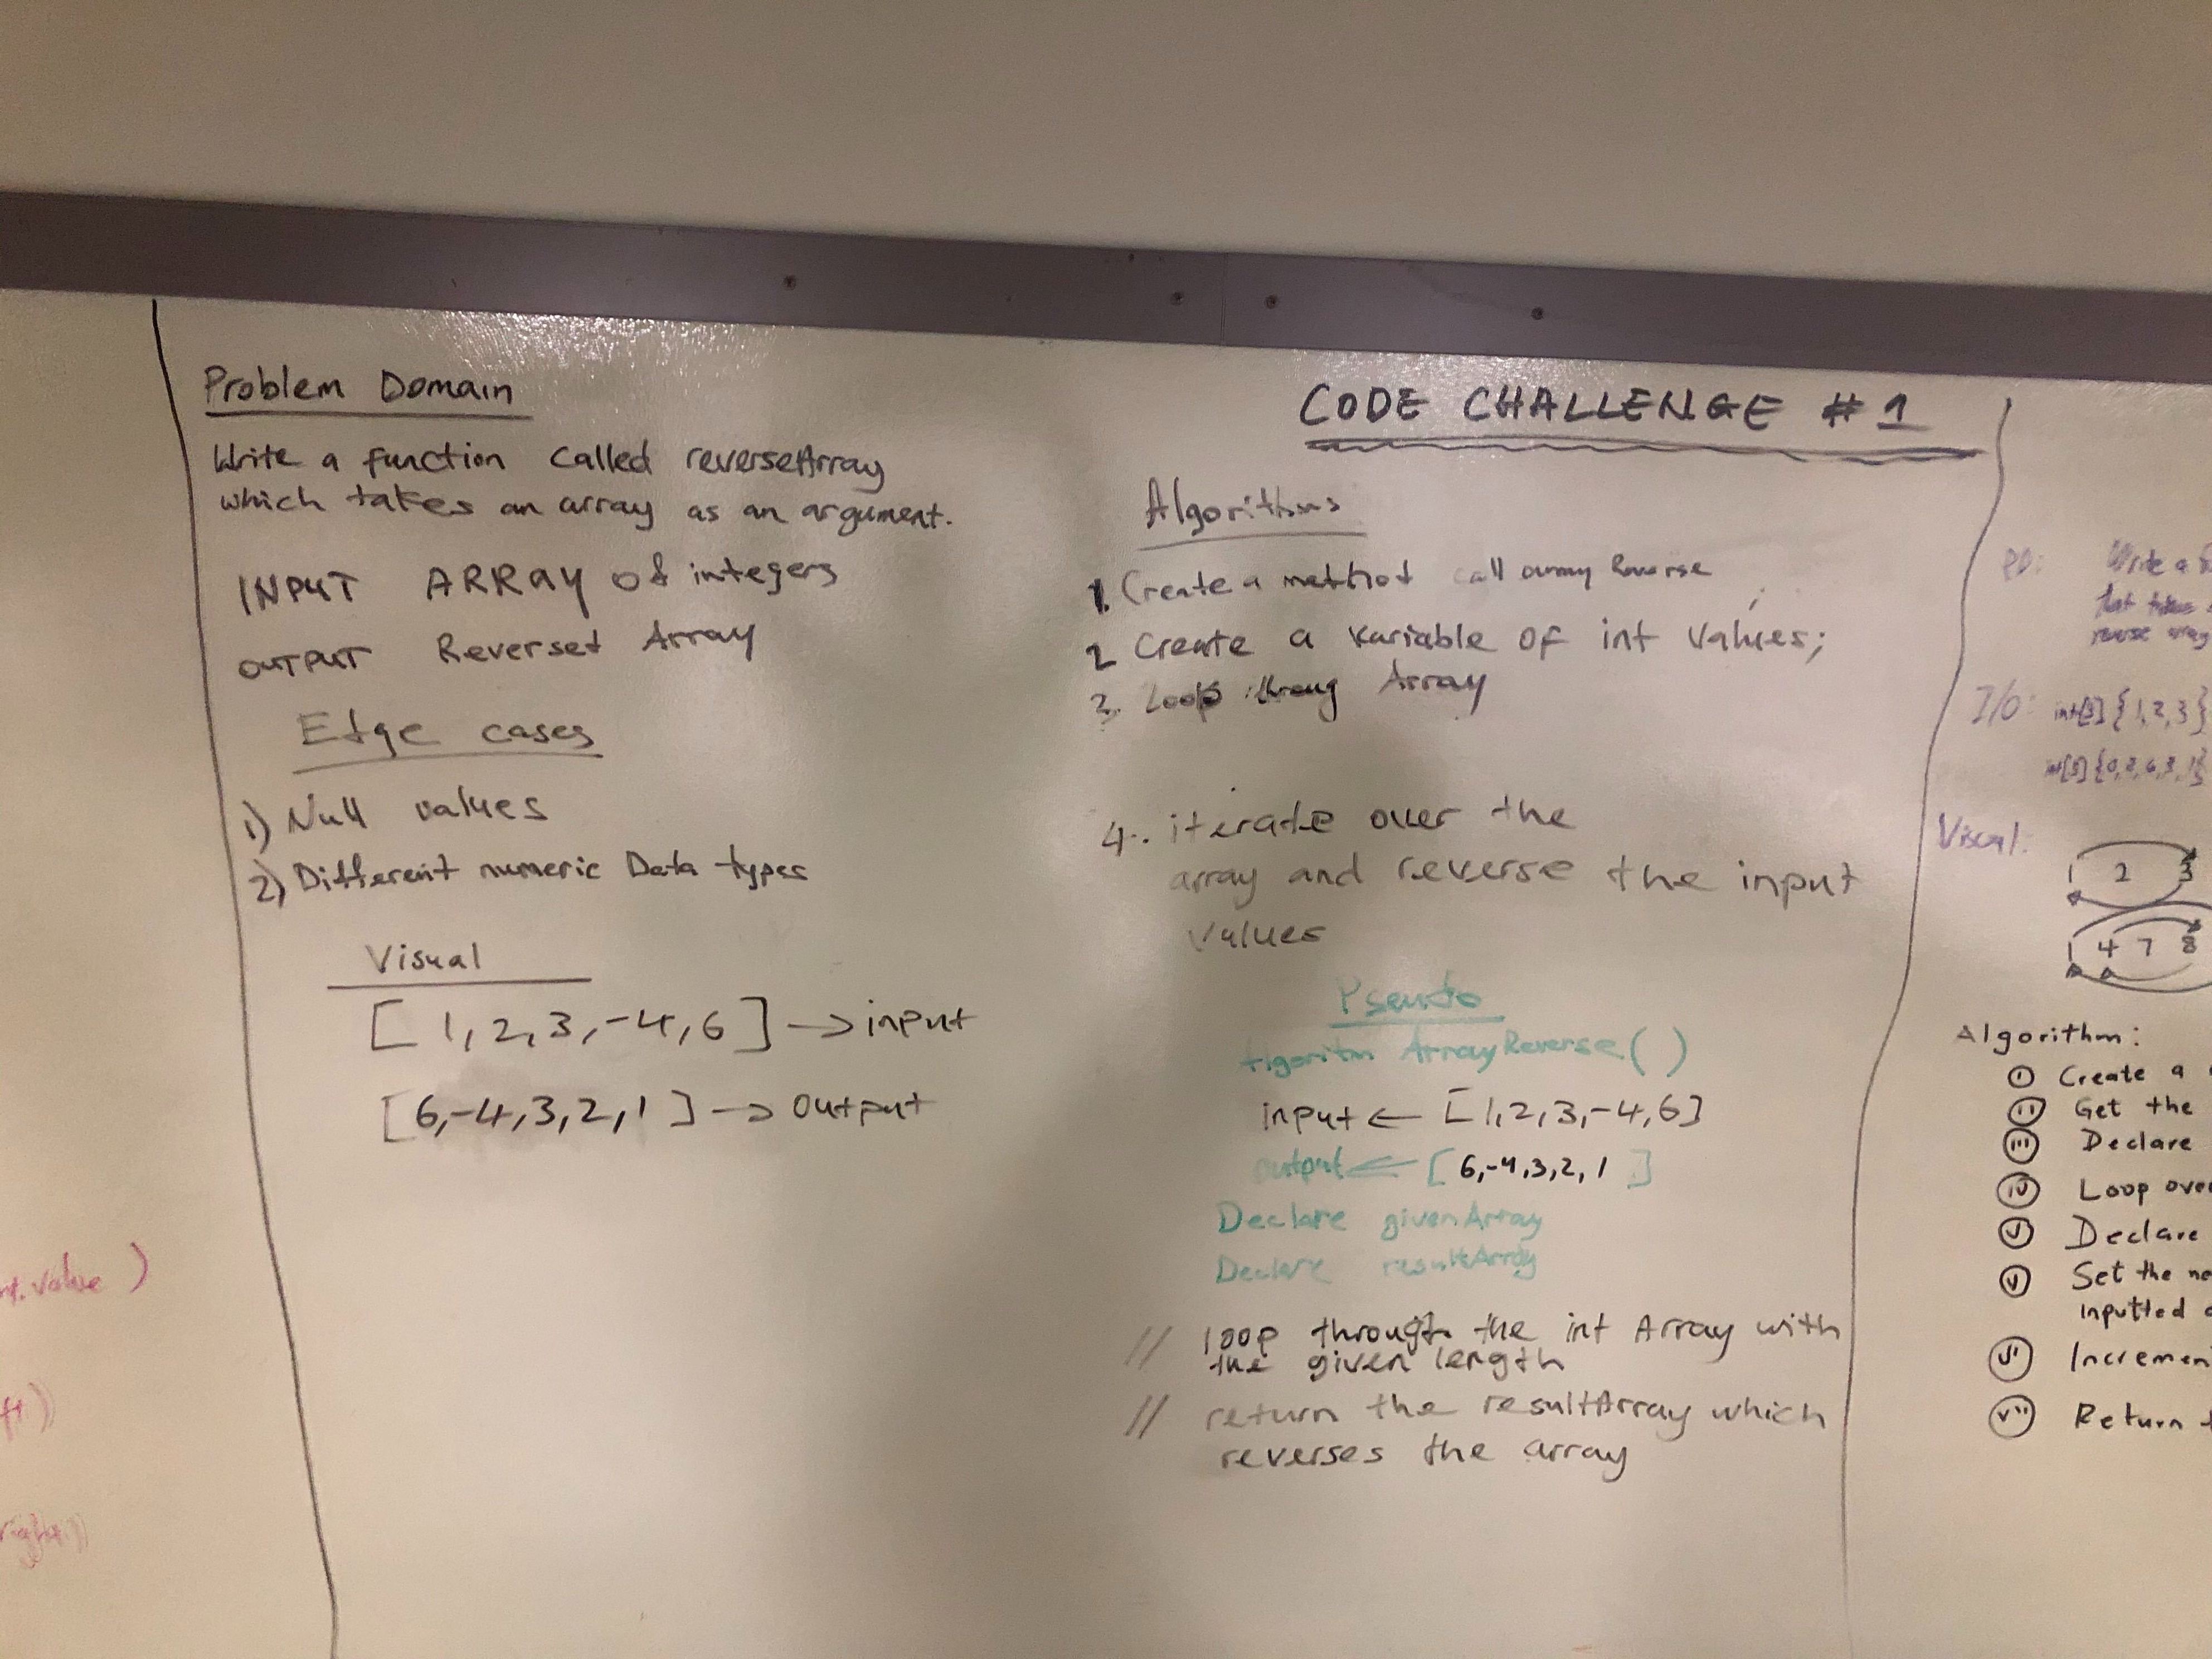 Problem Domain
Write a function called reverseArray
which takes an array as an argument.
INPUT ARRAY of integers
OUTPUT Reverset Array
Edge cases
1) Null values
2) Different numeric Data types
Visual
[ 1, 2, 3, -4, 6 ] → input
[ 6, -4, 3, 2, 1 ] → output
CODE CHALLENGE # 1
Algorithms
1. Create a method call array Reverse
2 Create a variable of int values;
3. Loop throug Array
4. iterate over the
array and reverse the input
values
Pseudo
Algoritm ArrayReverse ( )
input ← [1, 2, 3, -4, 6]
output ← [ 6, -4, 3, 2, 1 ]
Declare givenArray
Declare resultArray
// loop through the int Array with
the given length
// return the resultArray which
reverses the array
value )
ft))
right))
PD: Write a
that takes
reverse array
I/O: int[3] { 1, 2, 3 }
int[5] {0, 2, 6, 3, 1}
Visual:
1 2 3
1 4 7 8
Algorithm:
i Create a
ii Get the
iii Declare
iv Loop over
v Declare
v Set the
inputted
vi Incremen
vii Return